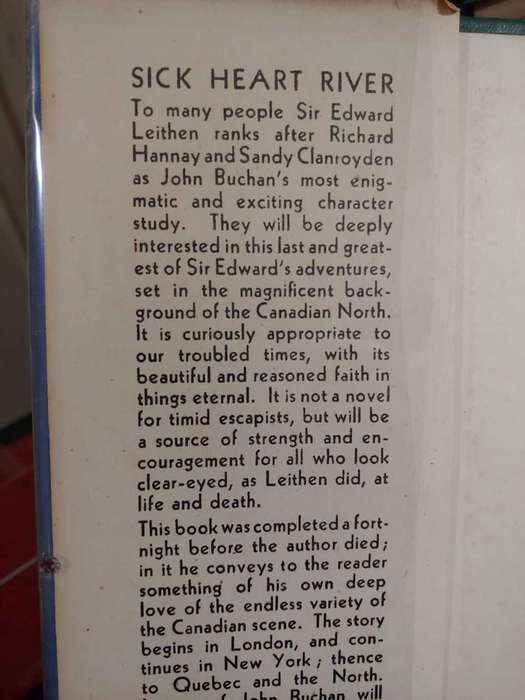 SICK HEART RIVER
To many people Sir Edward
Leithen ranks after Richard
Hannay and Sandy Clanroyden
as John Buchan's most enig-
matic and exciting character
study. They will be deeply
interested in this last and great-
est of Sir Edward's adventures,
set in the magnificent back-
ground of the Canadian North.
It is curiously appropriate to
our troubled times, with its
beautiful and reasoned faith in
things eternal. It is not a novel
for timid escapists, but will be
a source of strength and en-
couragement for all who look
clear-eyed, as Leithen did, at
life and death.
This book was completed a fort-
night before the author died;
in it he conveys to the reader
something of his own deep
love of the endless variety of
the Canadian scene. The story
begins in London, and con-
tinues in New York; thence
to Quebec and the North.
of John Buchan will